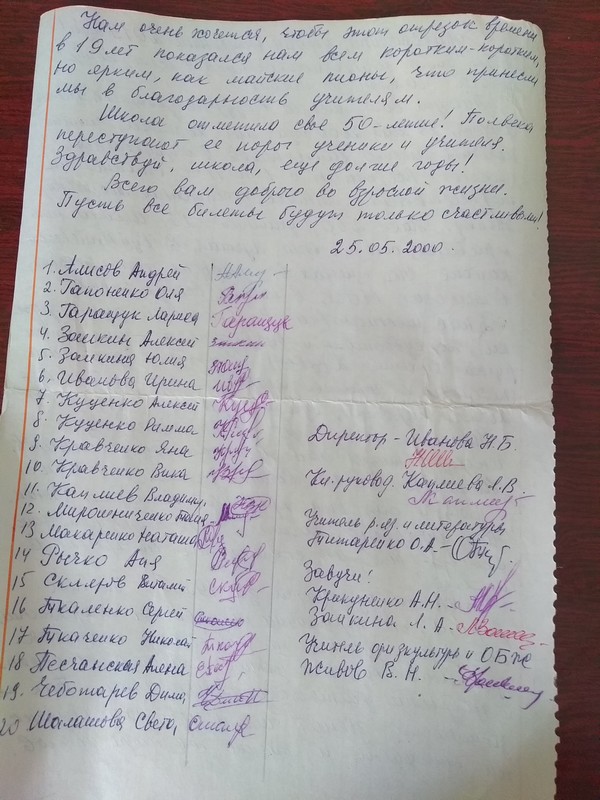 Нам очень хочется, чтобы этот отрезок времени
в 19 лет показался нам всем коротким-коротким,
но ярким, как майские пионы, что принесли
мы в благодарность учителям.
Школа отметила свое 50-летие! Полвека
переступают ее порог ученики и учителя.
Здравствуй, школа, еще долгие годы!
Всего вам доброго во взрослой жизни.
Пусть все билеты будут только счастливыми!
25.05.2000.
1. Алисов Андрей
2. Гапоненко Оля
3. Гаращук Лариса Гаращук
4. Заикин Алексей
5. Заикина Юлия
6. Иванова Ирина
7. Куценко Алексей
8. Куценко Римма
9. Кравченко Яна
10. Кравченко Вика
11. Каплиев Владимир,
12. Мирошниченко
13 Макаренко Наташа
14 Рычко Аня
15 Скляров Виталий
16 Ткаленко Сергей
17 Ткаченко Николай
18 Песчанская Алена
19. Чеботарев Дима
20 Шалашова Света,
Директор - Иванова Н.Б.
Кл. руковод. Каплиева Л.В.
Учитель р.яз. и литературы
Титаренко О.А. -
Завучи:
Кракуненко А.Н. -
Заикина Л. А. -
Учитель физкультуры и ОБЖ
Живов В.Н. -